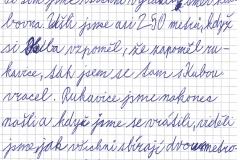 bovna. Ušli jsme asi 250 metrů, když
si vzpomněl, že zapomněl ru-
kavice, tak jsem se tam s Kubou
vracel. Rukavice jsme nakonec
našli a když jsme se vrátili, viděli
jsme jak všichni sbírají dvoumetro-